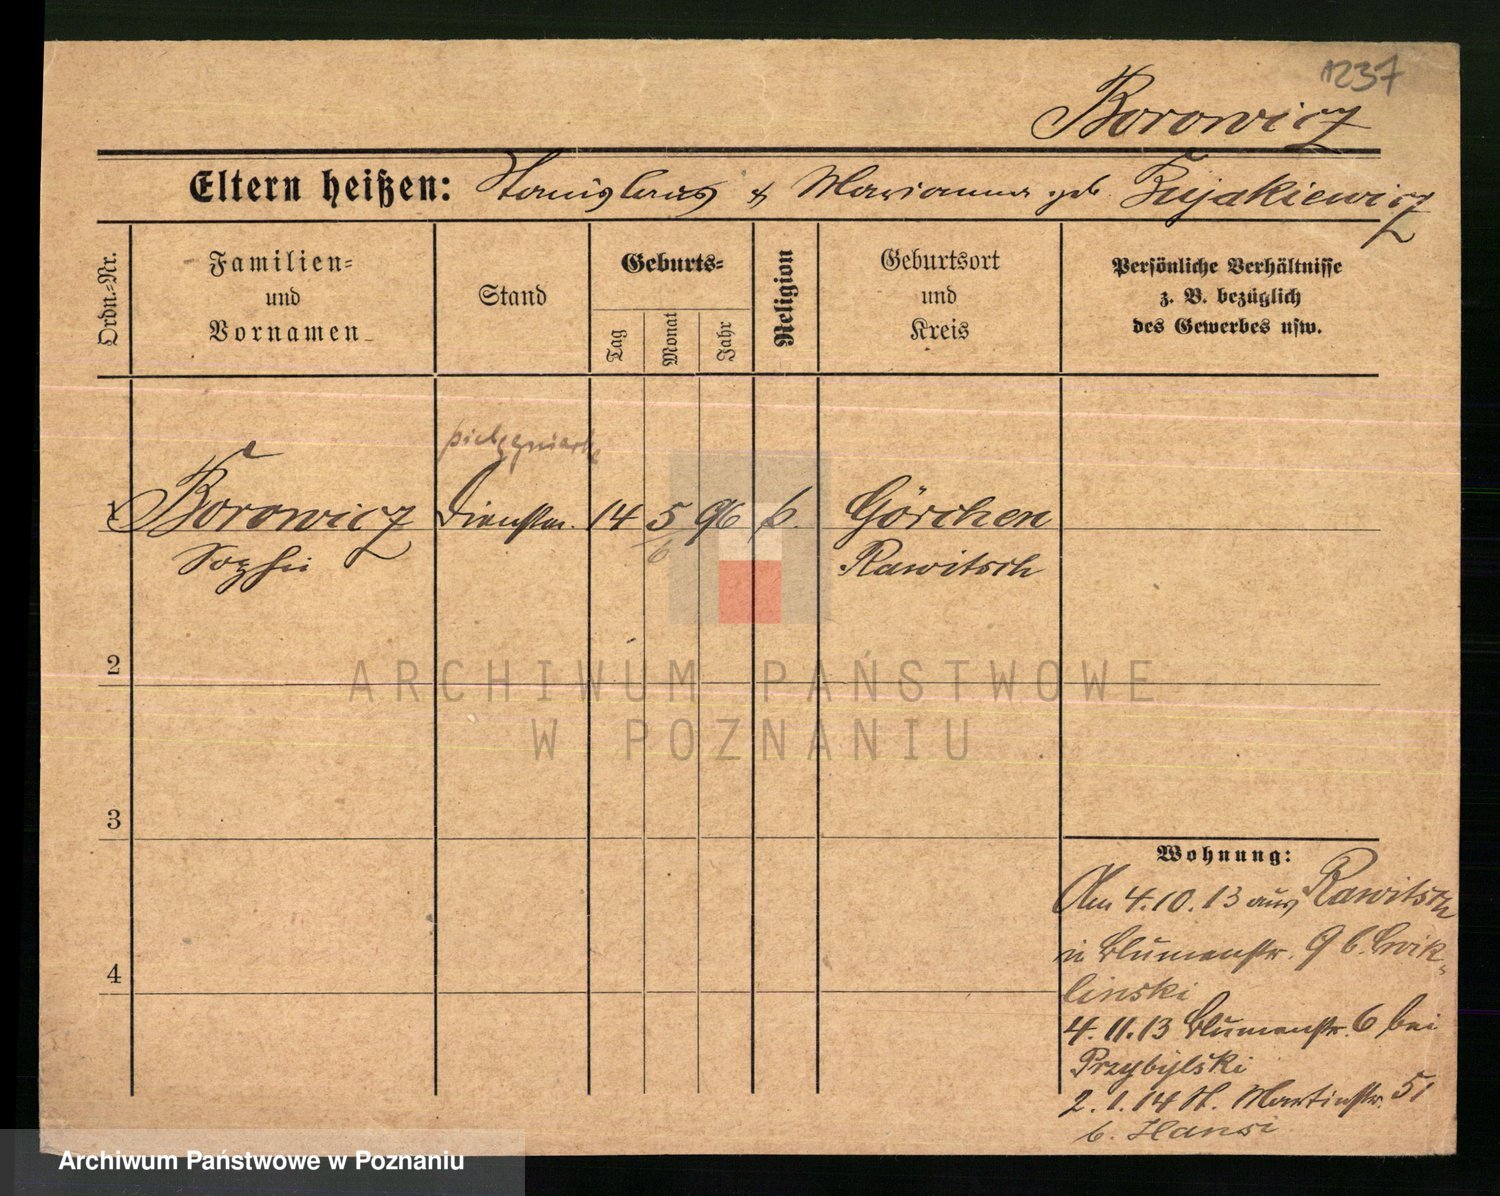 1237
Borowicz
Eltern heißen: Stanislaus & Marianna geb.
Ordn.-Nr.
Familien-
und
Vornamen
Stand
Geburts-
Tag
Monat
Jahr
Religion
Geburtsort
und
Kreis
Persönliche Verhältnisse
z. B. bezüglich
des Gewerbes usw.
1 Borowicz Dienstm. 14 5 96 k. Görchen
6
Sophie Rawitsch
2
3
4
Wohnung:
Am 4.10.13 aus Rawitsch
in Blumenstr. 9 b. Cwik-
linski
4.11.13 Blumenstr. 6 bei
Przybylski
2.1.14 St. Martinstr. 51
b. Hansi
ARCHIWUM PAŃSTWOWE
W POZNANIU
Archiwum Państwowe w Poznaniu